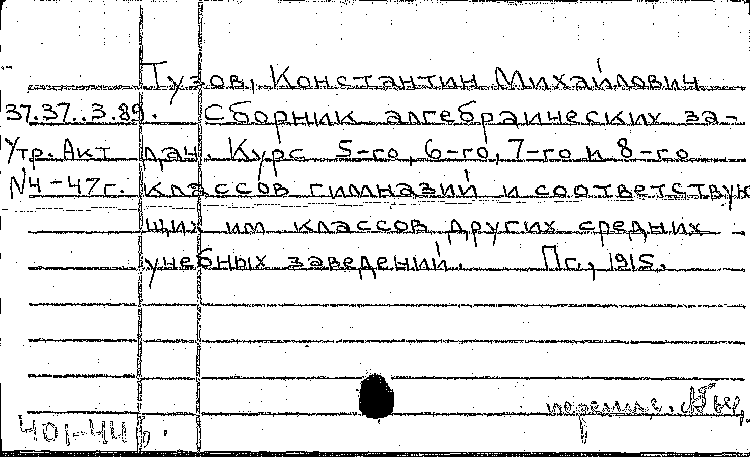 Тузов, Константин Михайлович
37.37..3.89. Сборник алгебраических за-
Утр. Акт дач. Курс 5-го, 6-го, 7-го и 8-го
N4-47г. классов гимназий и соответствую
щих им классов других средних
учебных заведений. Пг., 1915.